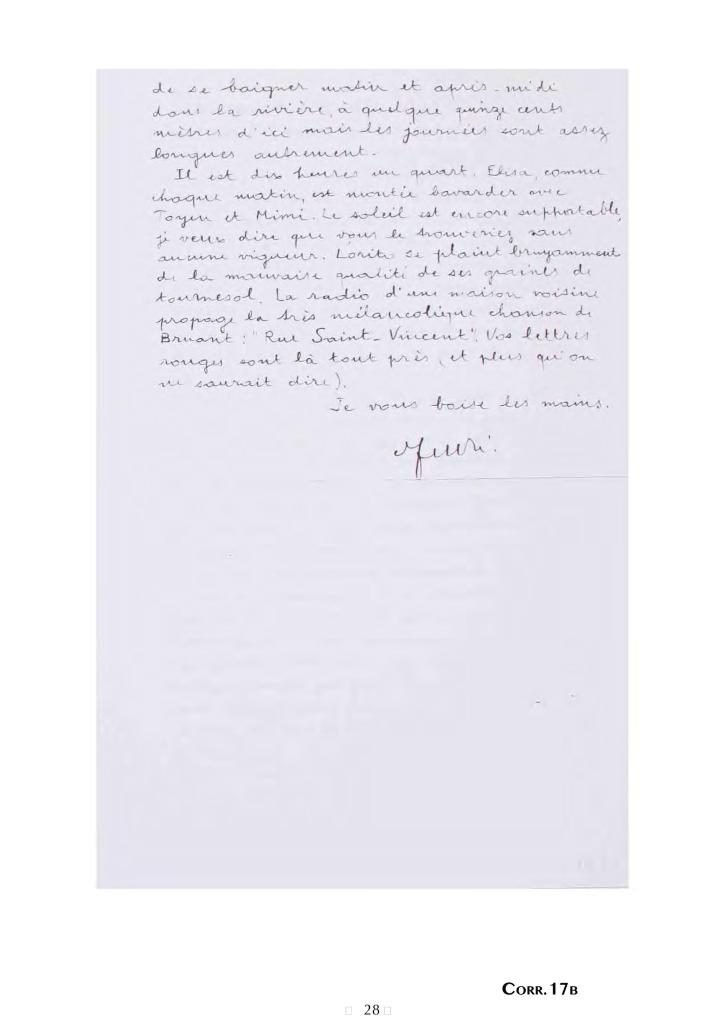 de se baigner matin et après-midi
dans la rivière, à quelque quinze cents
mètres d'ici mais les journées sont assez
longues autrement.
Il est dix heures un quart. Elisa, comme
chaque matin, est montée bavarder avec
Toyen et Mimi. Le soleil est encore supportable,
je veux dire que vous le trouveriez sans
aucune vigueur. Lorito se plaint bruyamment
de la mauvaise qualité de ses graines de
tournesol. La radio d'une maison voisine
propage la très mélancolique chanson de
Bruant : "Rue Saint-Vincent". Vos lettres
rouges sont là tout près (et plus qu'on
ne saurait dire).
Je vous baise les mains.
CORR.17B
28